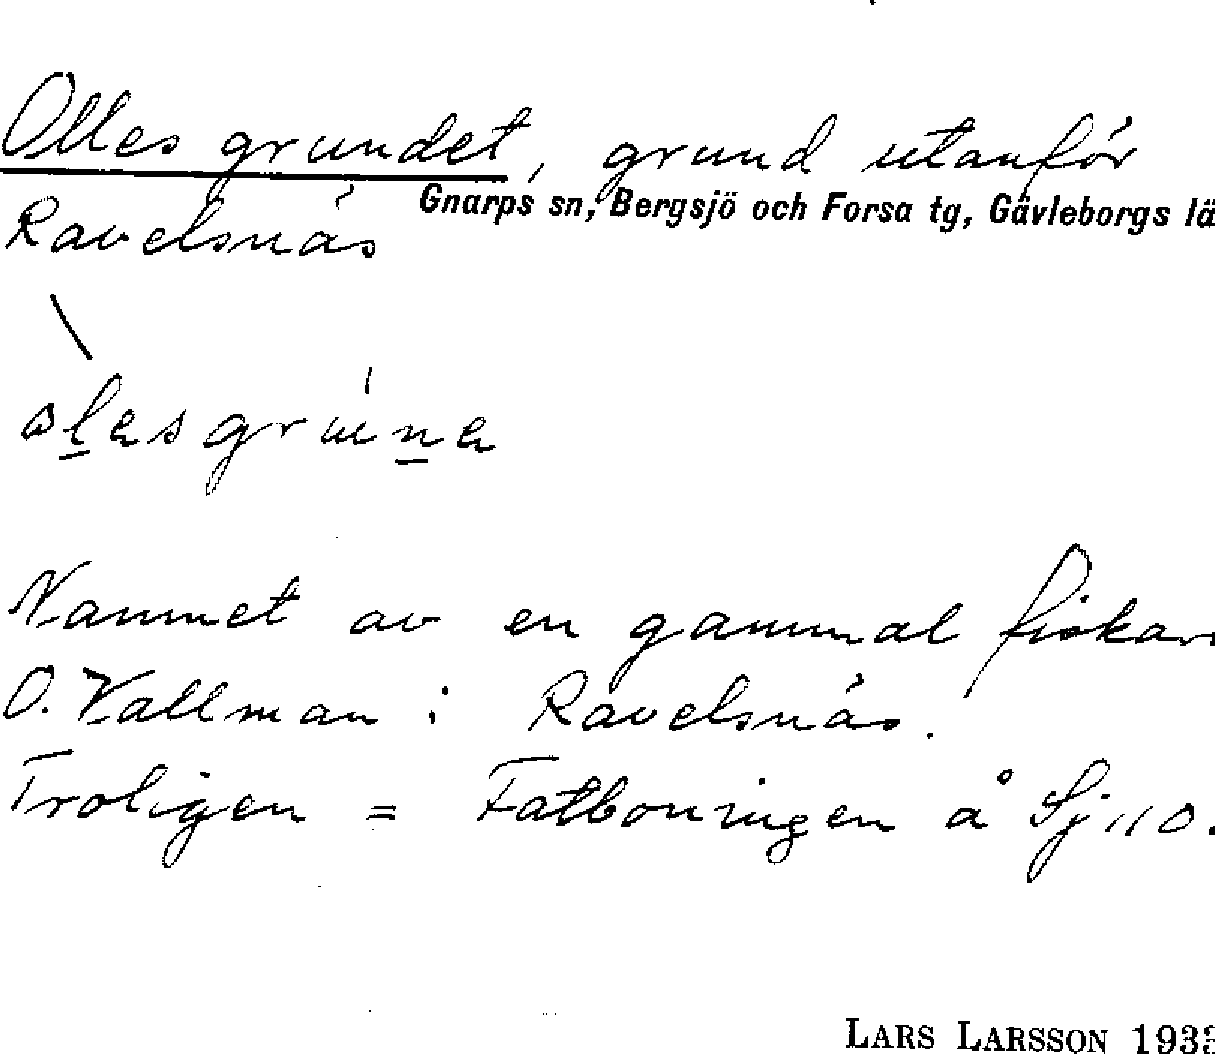 Olles grundet, grund utanför
Gnarps sn, Bergsjö och Forsa tg, Gävleborgs lä
Ravelsnäs
Namnet av en gammal fiskare
O. Vallman i Ravelsnäs.
Troligen = Fatboningen å Sj 110.
LARS LARSSON 1933